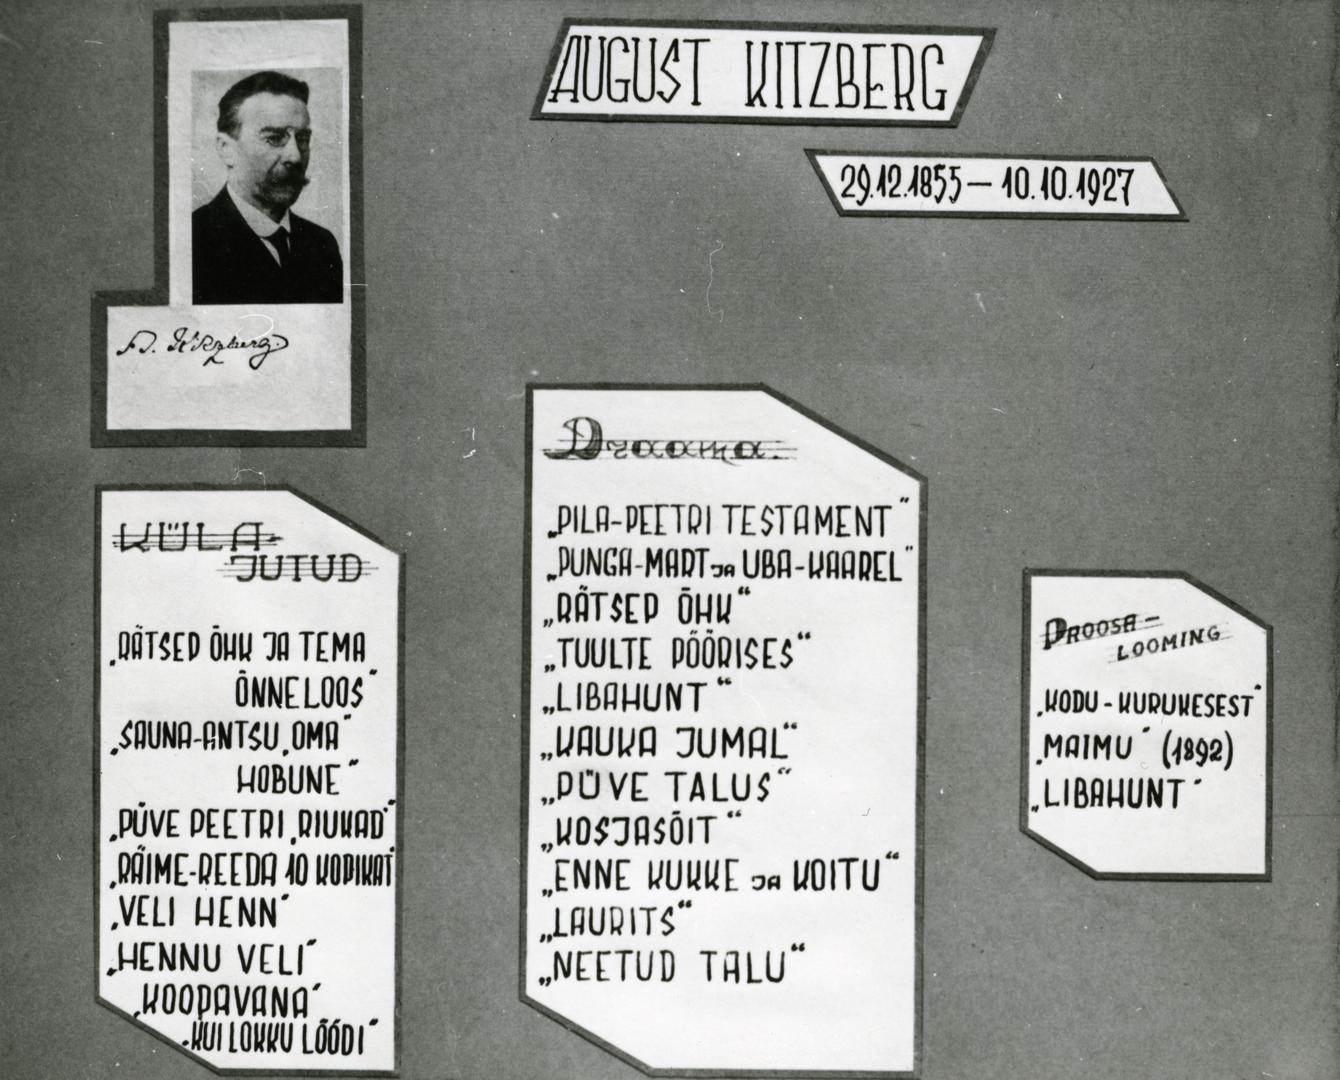 AUGUST KITZBERG
29.12.1855 – 10.10.1927
A. Kitzberg.
KÜLA-
JUTUD
„RÄTSEP ÕHK JA TEMA
ÕNNELOOS“
„SAUNA-ANTSU „OMA“
HOBUNE“
„PÜVE PEETRI „RIUKAD“
„RÄIME-REEDA 10 KOPIKAT
„VELI HENN“
„HENNU VELI“
„KOOPAVANA“
„KUI LOKKU LÕÕDI“
Draama.
„PILA-PEETRI TESTAMENT“
„PUNGA-MART JA UBA-KAAREL“
„RÄTSEP ÕHK“
„TUULTE PÖÖRISES“
„LIBAHUNT“
„KAUKA JUMAL“
„PÜVE TALUS“
„KOSJASÕIT“
„ENNE KUKKE JA KOITU“
„LAURITS“
„NEETUD TALU“
PROOSA-
LOOMING
„KODU-KURUKESEST“
„MAIMU“ (1892)
„LIBAHUNT“